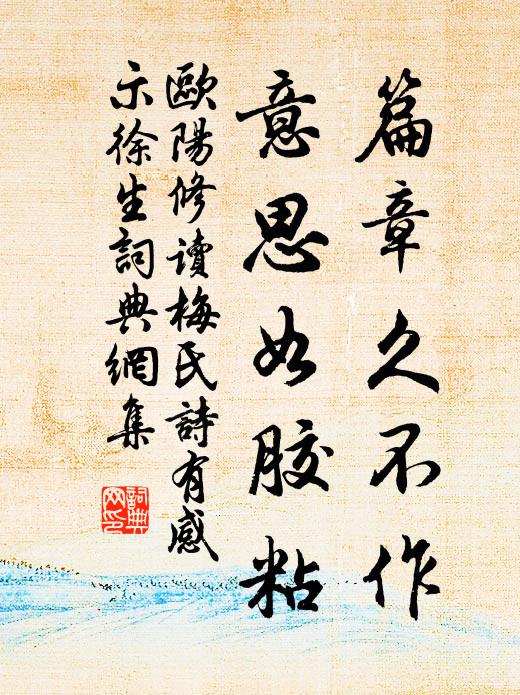 篇章久不作
意思如胶粘
歐陽修讀梅氏詩有感
示徐生詞典網集
詞典
网印